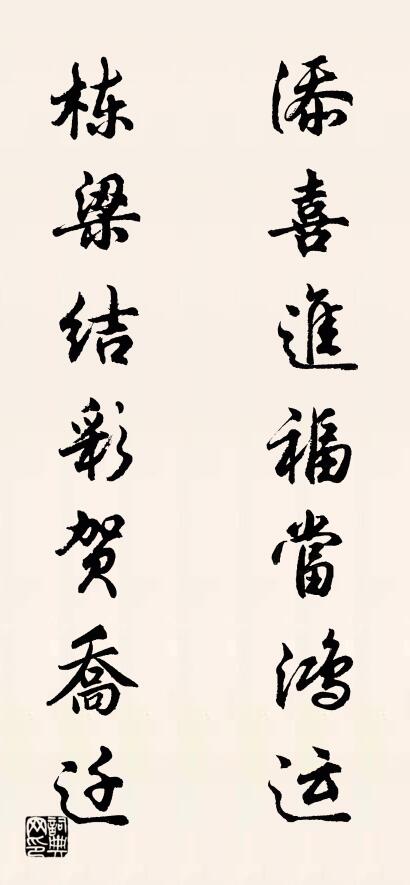 添喜進福當鴻运
栋梁结彩贺喬迁
詞典网印